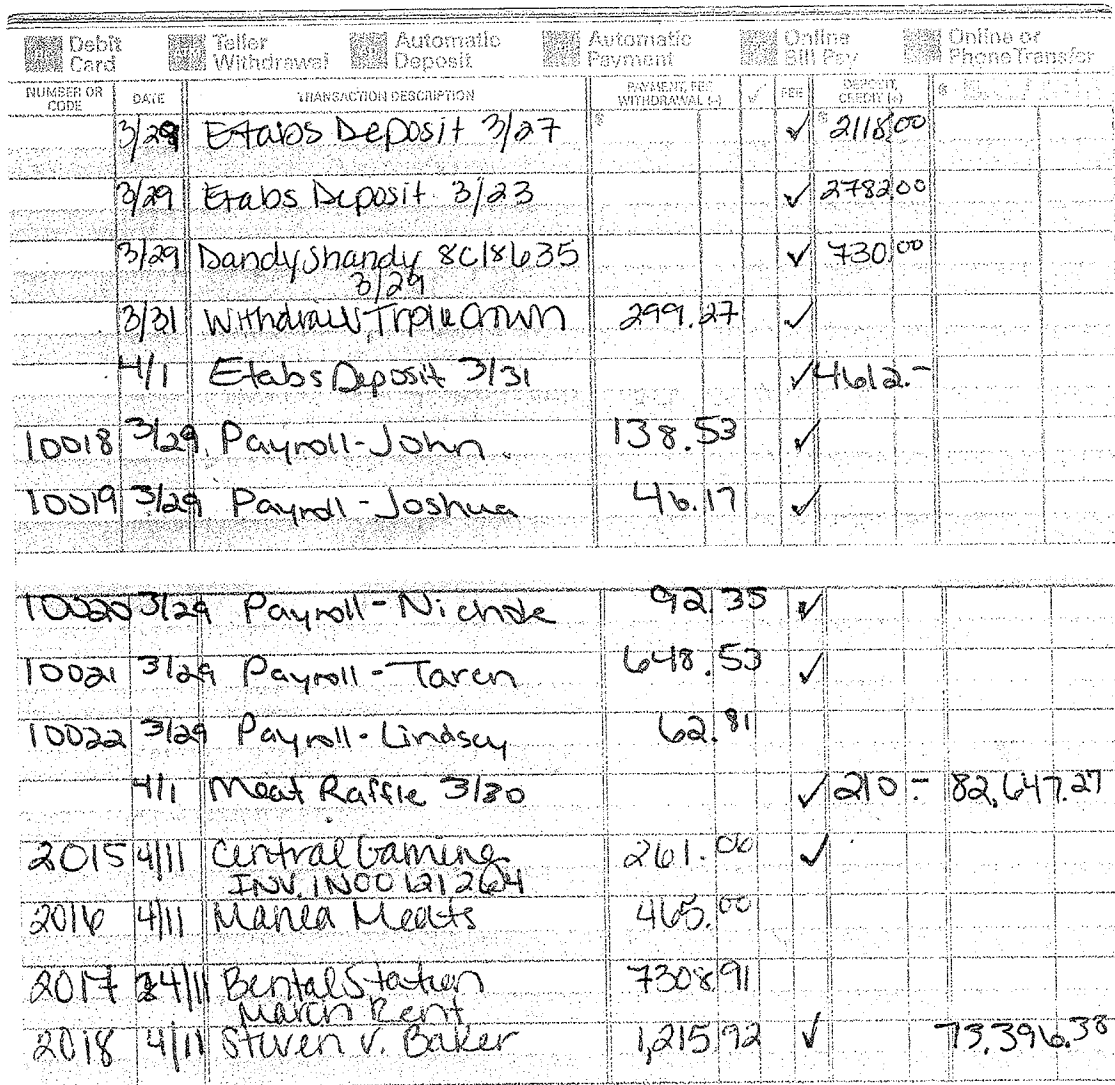 Debit Card Teller Withdrawal Automatic Deposit Automatic Payment Online Bill Pay Online or Phone Transfer
NUMBER OR CODE DATE TRANSACTION DESCRIPTION PAYMENT, FEE WITHDRAWAL (-) ✓ FEE DEPOSIT, CREDIT (+) $
3/29 Etabs Deposit 3/27 $ ✓ $ 2118.00
3/29 Etabs Deposit 3/23 ✓ 2782.00
3/29 Dandy Shandy 8C18635 ✓ 730.00
3/29
3/31 Withdrawl Triple Crown 299.27 ✓
4/1 Etabs Deposit 3/31 ✓ 4612.-
10018 3/29 Payroll-John 138.53 ✓
10019 3/29 Payroll-Joshua 46.17 ✓
10020 3/29 Payroll-Nichole 92.35 ✓
10021 3/29 Payroll-Taren 648.53 ✓
10022 3/29 Payroll-Lindsey 62.81
4/1 Meat Raffle 3/30 ✓ 210- 82,647.27
2015 4/11 Central Gaming 261.06 ✓
INV. IN00121264
2016 4/11 Meats 465.00
2017 4/11 Station 7308.91
March Rent
2018 4/11 Steven V. Baker 1,215.92 ✓ 73,396.38